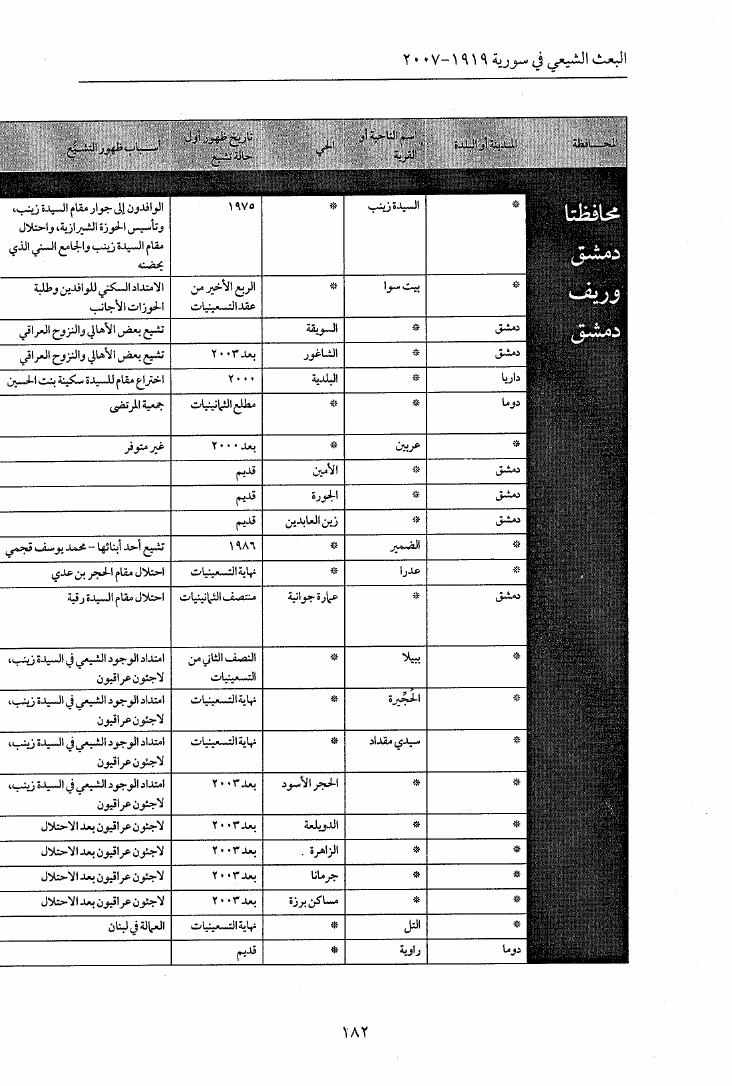 البعث الشيعي في سورية ١٩١٩-٢٠٠٧
المحافظة | المدينة أو البلدة | اسم الناحية أو القرية | الحي | تاريخ ظهور أول حالة تشيع | أسباب ظهور التشيع
محافظتا
دمشق
وريف
دمشق
* | السيدة زينب | * | ١٩٧٥ | الوافدون إلى جوار مقام السيدة زينب،
وتأسيس الحوزة الشيرازية، واحتلال
مقام السيدة زينب والجامع السني الذي
يحضنه
* | بيت سوا | * | الربع الأخير من | الامتداد السكني للوافدين وطلبة
عقد التسعينيات | الحوزات الأجانب
دمشق | * | السويقة | | تشيع بعض الأهالي والنزوح العراقي
دمشق | * | الشاغور | بعد ٢٠٠٣ | تشيع بعض الأهالي والنزوح العراقي
داريا | * | البلدية | ٢٠٠٠ | اختراع مقام للسيدة سكينة بنت الحسين
دوما | * | * | مطلع الثمانينيات | جمعية المرتضى
* | عربين | * | بعد ٢٠٠٠ | غير متوفر
دمشق | * | الأمين | قديم
دمشق | * | الجورة | قديم
دمشق | * | زين العابدين | قديم
* | الضمير | * | ١٩٨٦ | تشيع أحد أبنائها - محمد يوسف قجمي
* | عدرا | * | نهاية التسعينيات | احتلال مقام الحجر بن عدي
دمشق | * | عمارة جوانية | منتصف الثمانينيات | احتلال مقام السيدة رقية
* | ببيلا | * | النصف الثاني من | امتداد الوجود الشيعي في السيدة زينب،
التسعينيات | لاجئون عراقيون
* | الحُجَّيرة | * | نهاية التسعينيات | امتداد الوجود الشيعي في السيدة زينب،
لاجئون عراقيون
* | سيدي مقداد | * | نهاية التسعينيات | امتداد الوجود الشيعي في السيدة زينب،
لاجئون عراقيون
* | * | الحجر الأسود | بعد ٢٠٠٣ | امتداد الوجود الشيعي في السيدة زينب،
لاجئون عراقيون
* | * | الدويلعة | بعد ٢٠٠٣ | لاجئون عراقيون بعد الاحتلال
* | * | الزاهرة . | بعد ٢٠٠٣ | لاجئون عراقيون بعد الاحتلال
* | * | جرمانا | بعد ٢٠٠٣ | لاجئون عراقيون بعد الاحتلال
* | * | مساكن برزة | بعد ٢٠٠٣ | لاجئون عراقيون بعد الاحتلال
* | التل | * | نهاية التسعينيات | العمالة في لبنان
دوما | راوية | * | قديم
١٨٢